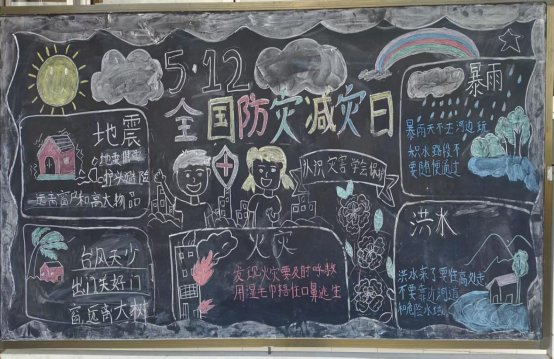 5·12
全国防灾减灾日
地震
护头避险
远离窗户和高大物品
台风天少
出门关好门
窗远离大树
认识灾害 学会保护
火灾
发现火灾要及时呼救
用湿毛巾捂住口鼻逃生
暴雨
暴雨天不去河边玩
积水路段不
要随便通过
洪水
洪水来了要往高处走
不要靠近河道
和危险水域